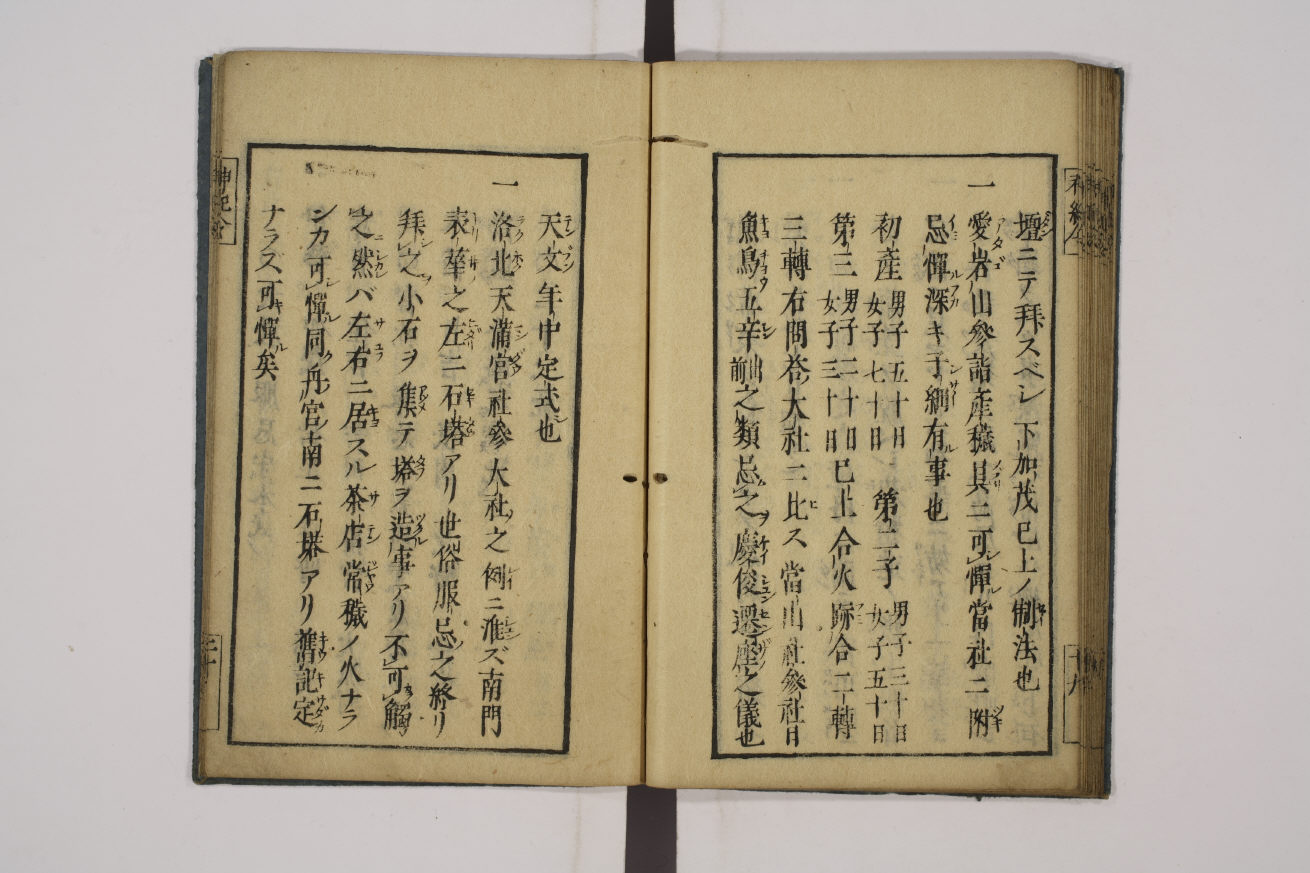 壇ニテ拜スベシ下加茂已上ノ制法也
一 愛岩山參詣產穢其ニ可憚當社ニ附
忌憚深キ子細有事也
初產 男子五十日 女子七十日 第二子 男子三十日 女子五十日
第三 男子二十日 女子三十日 已上合火 跡合二轉
三轉右問答大社ニ比ス當山社參社日
魚鳥五辛 出前 之類忌之慶俊遷座之儀也
天文年中定式也
一 洛北天滿宮社參大社之例ニ准ズ南門
表華之左ニ石塔アリ世俗服忌之終リ
拜之小石ヲ集テ塔ヲ造事アリ不可觸
之然バ左右ニ居スル茶店常穢ノ火ナラ
ンカ可憚同丹宮南ニ石塔アリ舊記定
ナラズ可憚矣
十九